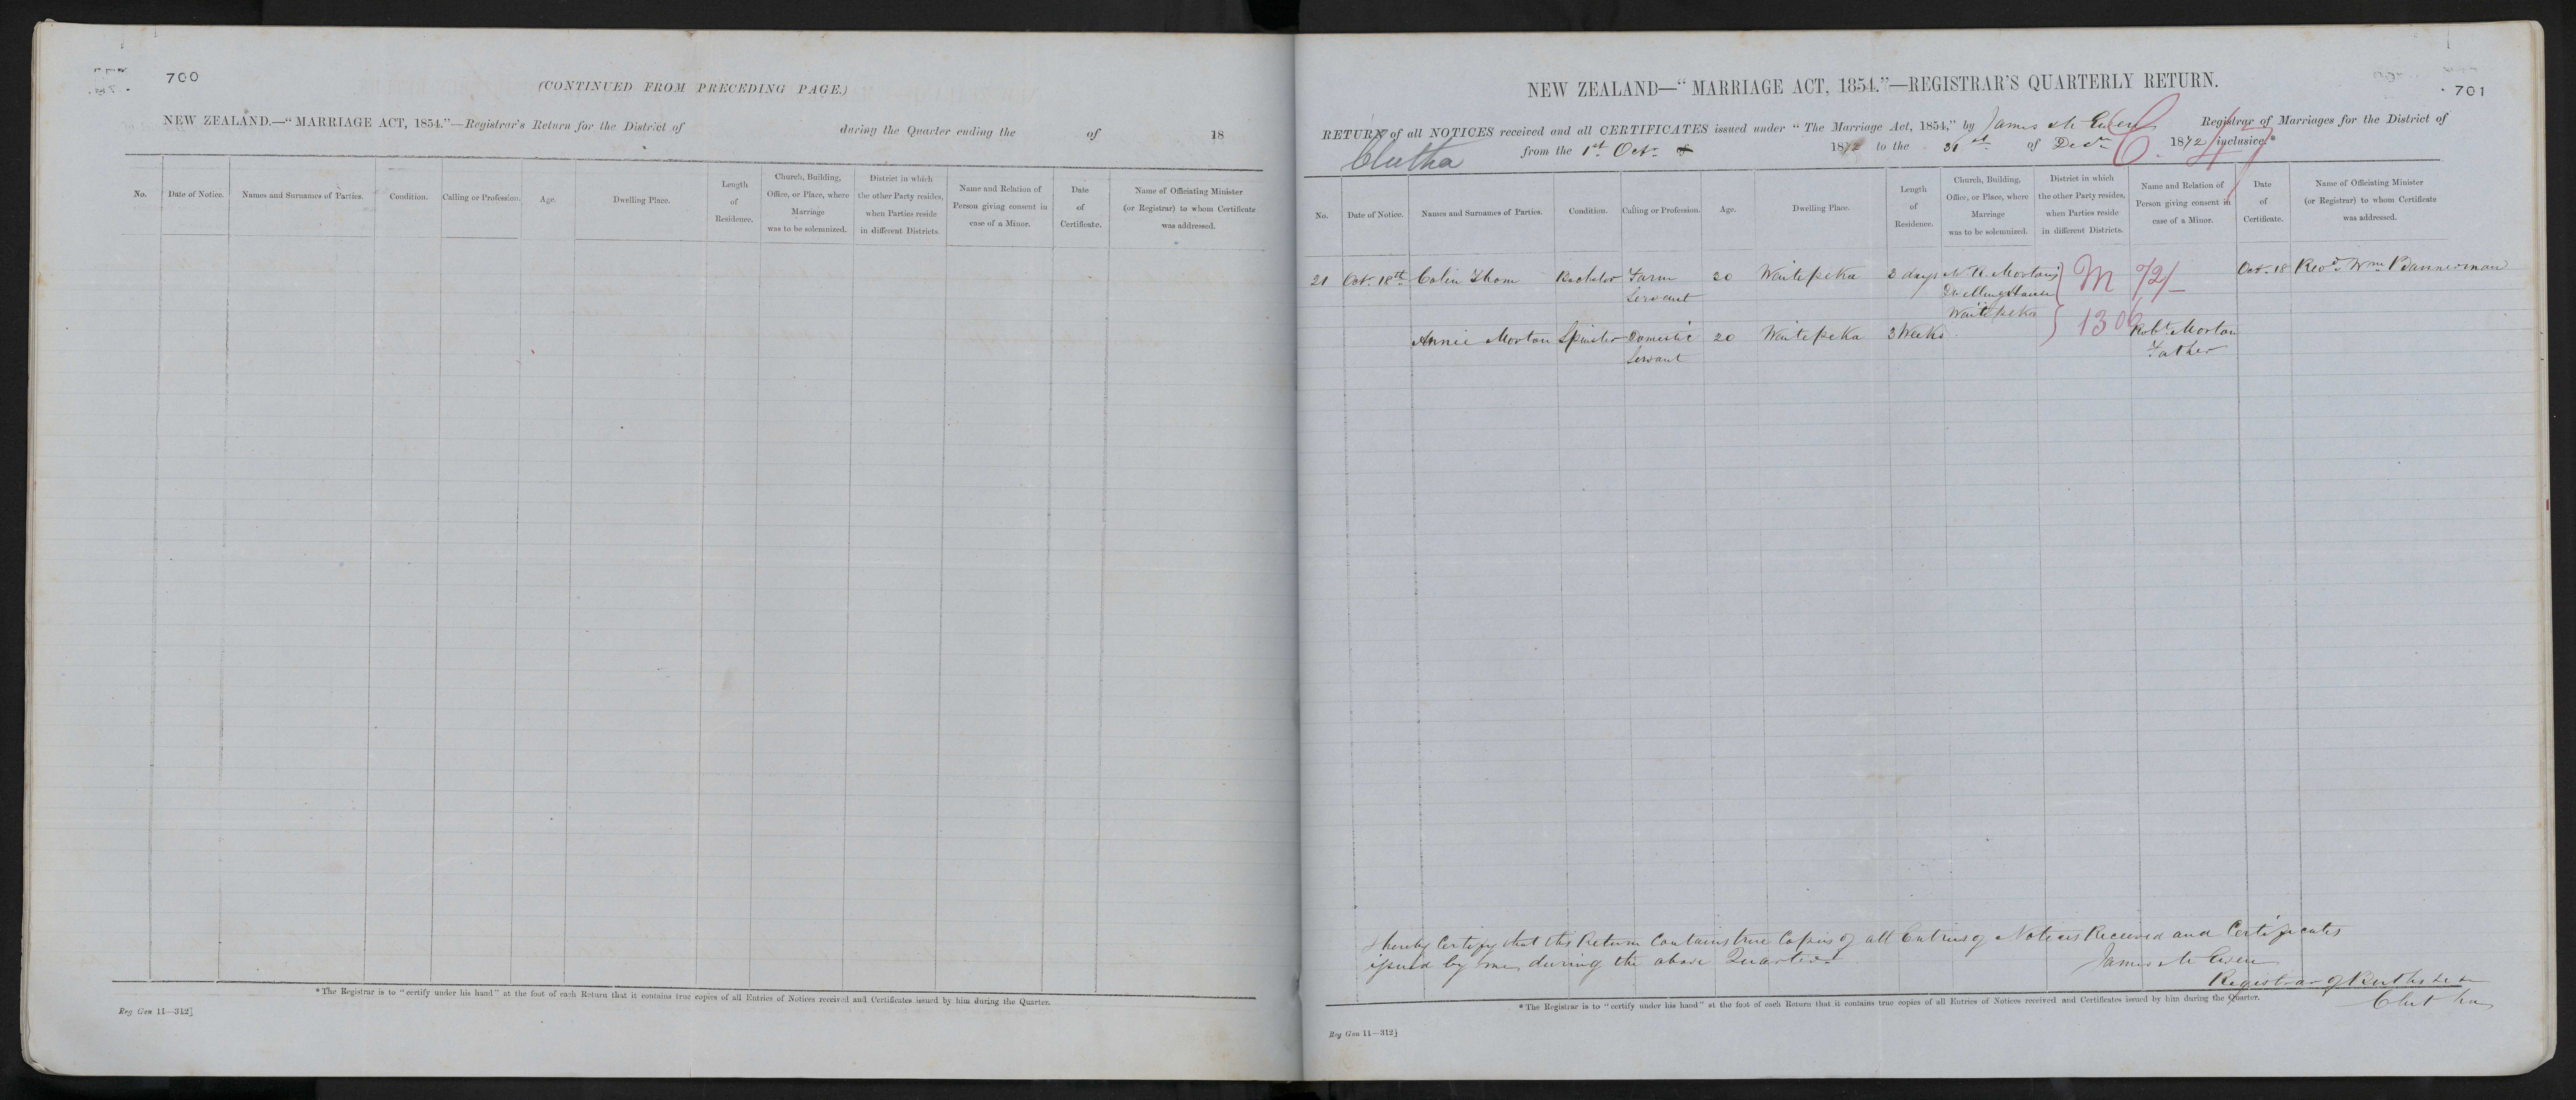 700
(CONTINUED FROM PRECEDING PAGE.)
NEW ZEALAND.—"MARRIAGE ACT, 1854."—Registrar's Return for the District of during the Quarter ending the of 18
No.
Date of Notice.
Names and Surnames of Parties.
Condition.
Calling or Profession.
Age.
Dwelling Place.
Length
of
Residence.
Church, Building,
Office, or Place, where
Marriage
was to be solemnized.
District in which
the other Party resides,
when Parties reside
in different Districts.
Name and Relation of
Person giving consent in
case of a Minor.
Date
of
Certificate.
Name of Officiating Minister
(or Registrar) to whom Certificate
was addressed.
*The Registrar is to "certify under his hand" at the foot of each Return that it contains true copies of all Entries of Notices received and Certificates issued by him during the Quarter.
Reg Gen 11—312]
701
NEW ZEALAND—"MARRIAGE ACT, 1854."—REGISTRAR'S QUARTERLY RETURN.
RETURN of all NOTICES received and all CERTIFICATES issued under "The Marriage Act, 1854," by James McEwen Registrar of Marriages for the District of
Clutha from the 1st Octr 1872 to the 31st of Decr 1872 inclusive.*
C. 47
No.
Date of Notice.
Names and Surnames of Parties.
Condition.
Calling or Profession.
Age.
Dwelling Place.
Length
of
Residence.
Church, Building,
Office, or Place, where
Marriage
was to be solemnized.
District in which
the other Party resides,
when Parties reside
in different Districts.
Name and Relation of
Person giving consent in
case of a Minor.
Date
of
Certificate.
Name of Officiating Minister
(or Registrar) to whom Certificate
was addressed.
21 Oct. 18th Colin Thom Bachelor Farm 20 Waitepeka 2 days Mortons M 72/ Oct. 18 Revd Wm Bannerman
Servant Dwelling House
Waitepeka 1306
Annie Morton Spinster Domestic 20 Waitepeka 3 Weeks Robt Morton
Servant Father
I hereby Certify that this Return Contains true Copies of all Entries of Notices Received and Certificates
issued by me during the above Quarter
James McEwen
Registrar of Births &c
Clutha
*The Registrar is to "certify under his hand" at the foot of each Return that it contains true copies of all Entries of Notices received and Certificates issued by him during the Quarter.
Reg Gen 11—312]